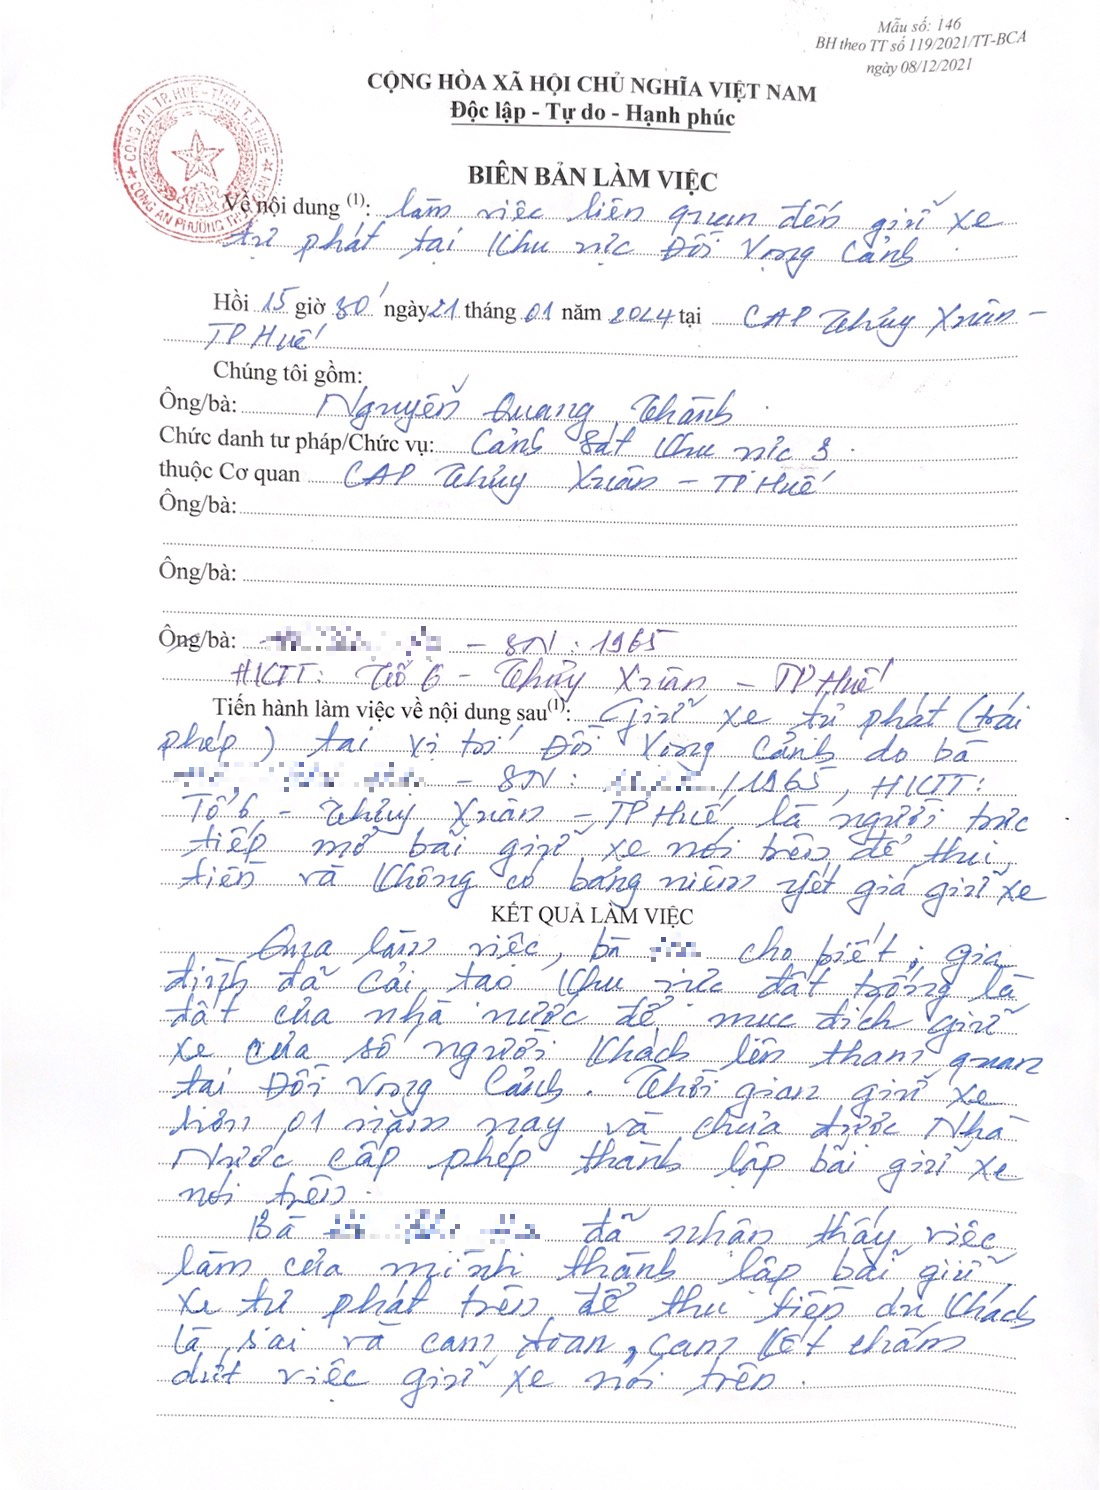 Mẫu số: 146
BH theo TT số 119/2021/TT-BCA
ngày 08/12/2021
CỘNG HÒA XÃ HỘI CHỦ NGHĨA VIỆT NAM
Độc lập - Tự do - Hạnh phúc
CÔNG AN TP. HUẾ - TỈNH T.T. HUẾ
CÔNG AN PHƯỜNG
BIÊN BẢN LÀM VIỆC
Về nội dung (1): làm việc liên quan đến giữ xe
tự phát tại khu vực Đồi Vọng Cảnh
Hồi 15 giờ 30' ngày 21 tháng 01 năm 2024 tại CAP Thủy Xuân -
TP Huế
Chúng tôi gồm:
Ông/bà: Nguyễn Quang Thành
Chức danh tư pháp/Chức vụ: Cảnh sát khu vực 3.
thuộc Cơ quan CAP Thủy Xuân - TP Huế
Ông/bà:
Ông/bà:
Ông/bà: - SN: 1965
HKTT: Tổ 6 - Thủy Xuân - TP Huế
Tiến hành làm việc về nội dung sau(1): Giữ xe tự phát (trái
phép) tại vị trí Đồi Vọng Cảnh do bà
- SN: /1965, HKTT:
Tổ 6 - Thủy Xuân - TP Huế là người trực
tiếp mở bãi giữ xe nói trên để thu
tiền và không có bảng niêm yết giá giữ xe
KẾT QUẢ LÀM VIỆC
Qua làm việc, bà cho biết: gia
đình đã cải tạo khu vực đất trống là
đất của nhà nước để mục đích giữ
xe của số người khách lên tham quan
tại Đồi Vọng Cảnh. Thời gian giữ xe
hơn 01 năm nay và chưa được Nhà
Nước cấp phép thành lập bãi giữ xe
nói trên.
Bà đã nhận thấy việc
làm của mình thành lập bãi giữ
xe tự phát trên để thu tiền du khách
là sai và cam đoan, cam kết chấm
dứt việc giữ xe nói trên.